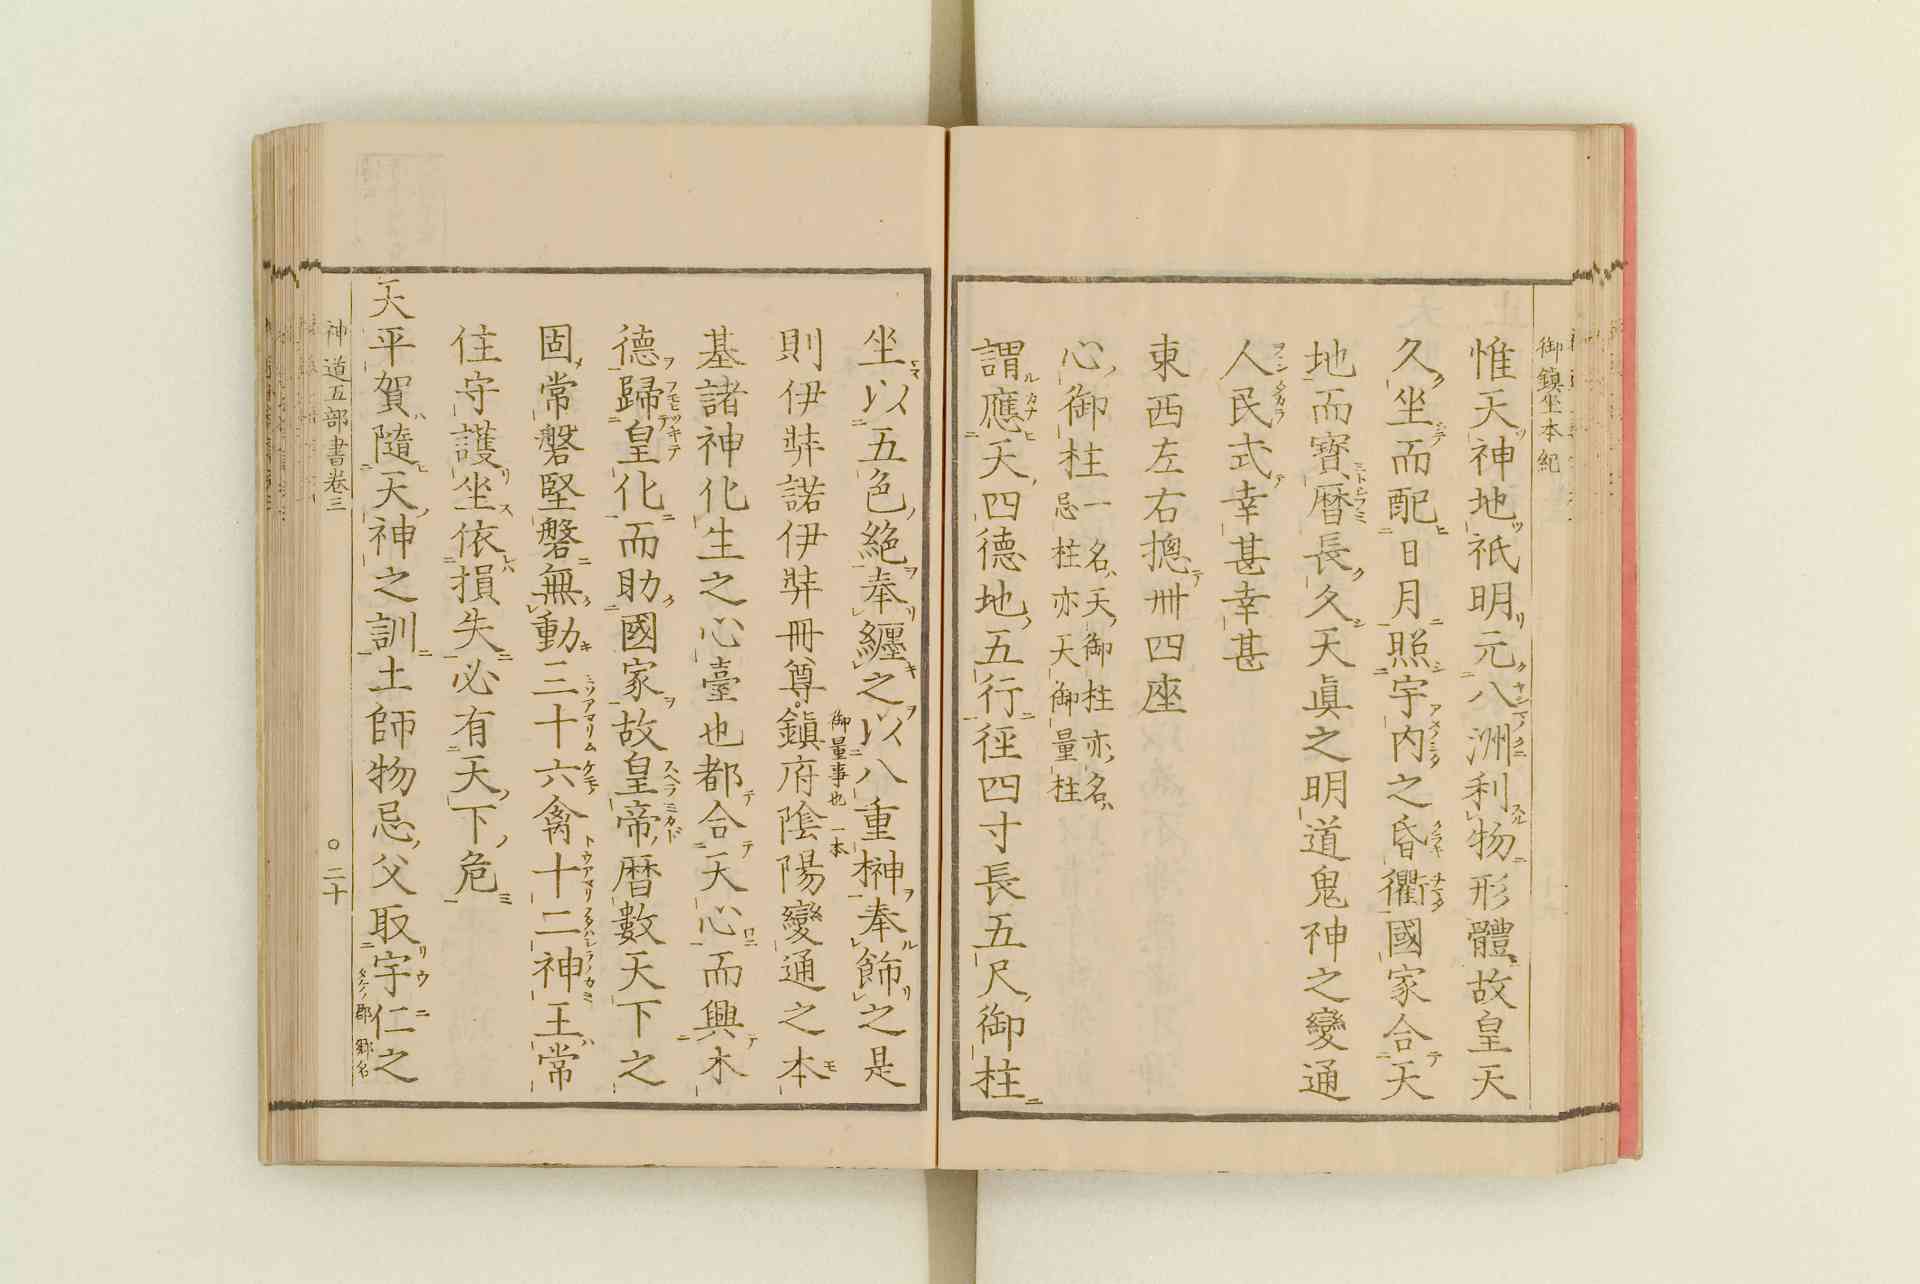 御鎮坐本紀
惟天神地祇明元八洲利物形體故皇天
久坐而配日月照宇内之昏衢國家合天
地而寳暦長久天眞之明道鬼神之變通
人民式幸甚幸甚
東西左右摠卅四座
心御柱一名天御柱亦名
忌柱亦天御量柱
謂應天四德地五行徑四寸長五尺御柱
坐以五色絁奉纒之以八重榊奉餝之是
則伊弉諾伊弉冊尊鎮府陰陽變通之本
御量事也一本
基諸神化生之心臺也都合天心而興木
德歸皇化而助國家故皇帝暦數天下之
固常磐堅磐無動三十六禽十二神王常
住守護坐依損失必有天下危
天平賀隨天神之訓土師物忌父取宇仁之
郡 郷名
神道五部書卷三
○二十